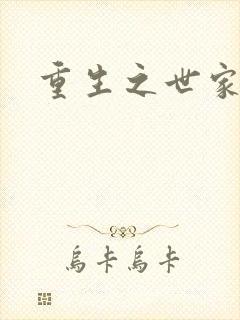 重生之世家
烏卡烏卡